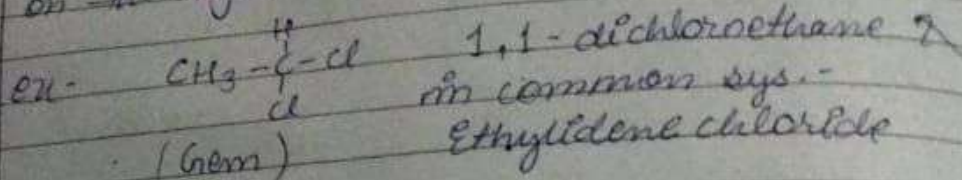 on
H
CH3-C-Cl 1,1-dichloroethane &
ex- Cl in common sys.-
(Gem) Ethylidene chloride